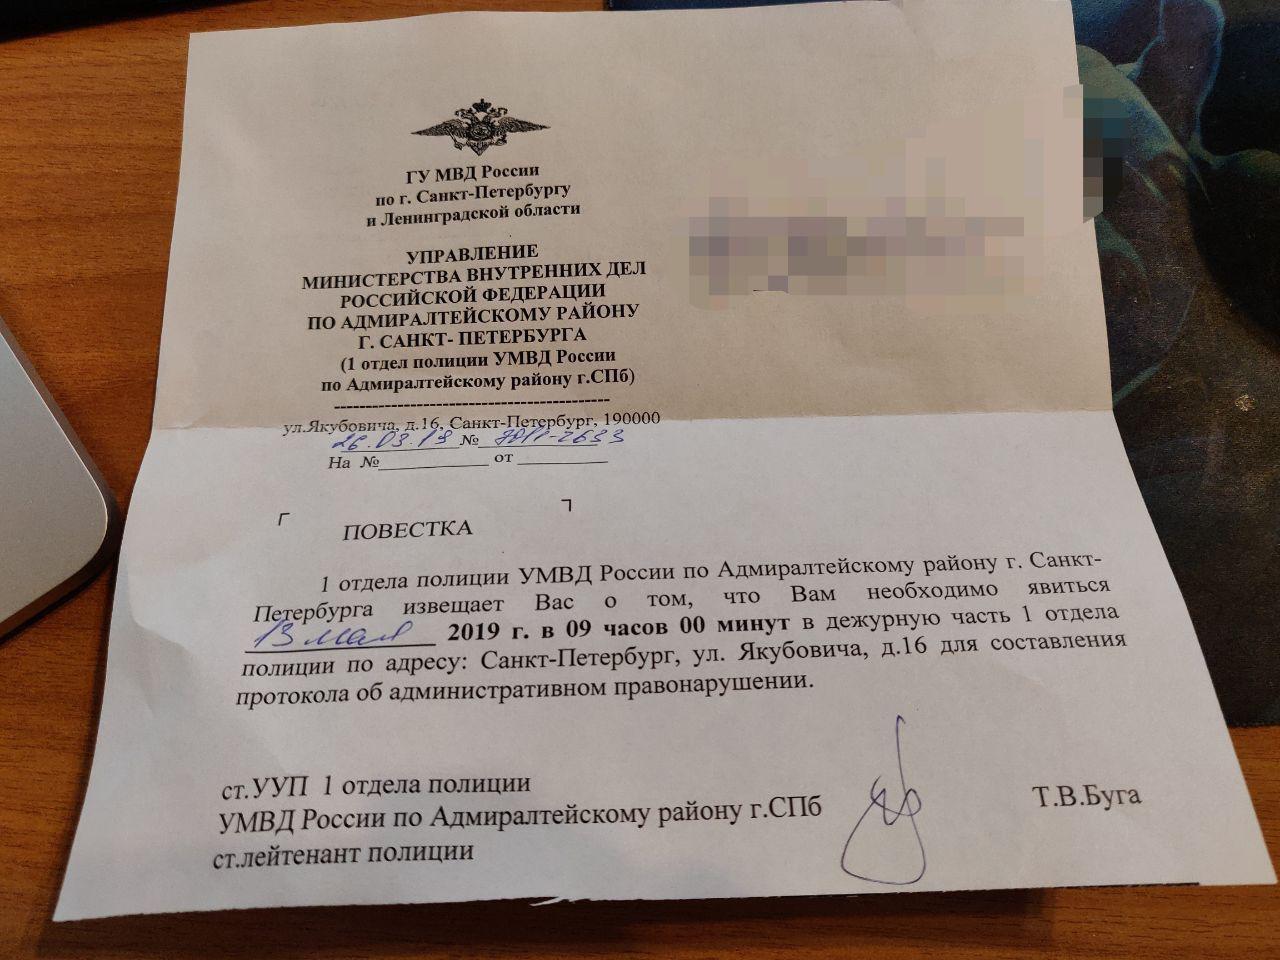 ГУ МВД России
по г. Санкт-Петербургу
и Ленинградской области
УПРАВЛЕНИЕ
МИНИСТЕРСТВА ВНУТРЕННИХ ДЕЛ
РОССИЙСКОЙ ФЕДЕРАЦИИ
ПО АДМИРАЛТЕЙСКОМУ РАЙОНУ
Г. САНКТ- ПЕТЕРБУРГА
(1 отдел полиции УМВД России
по Адмиралтейскому району г.СПб)
--------------------------------------------
ул.Якубовича, д.16, Санкт-Петербург, 190000
26.03.19 №
На №__________ от ________
ПОВЕСТКА
1 отдела полиции УМВД России по Адмиралтейскому району г. Санкт-
Петербурга извещает Вас о том, что Вам необходимо явиться
13 мая 2019 г. в 09 часов 00 минут в дежурную часть 1 отдела
полиции по адресу: Санкт-Петербург, ул. Якубовича, д.16 для составления
протокола об административном правонарушении.
ст.УУП 1 отдела полиции
УМВД России по Адмиралтейскому району г.СПб Т.В.Буга
ст.лейтенант полиции